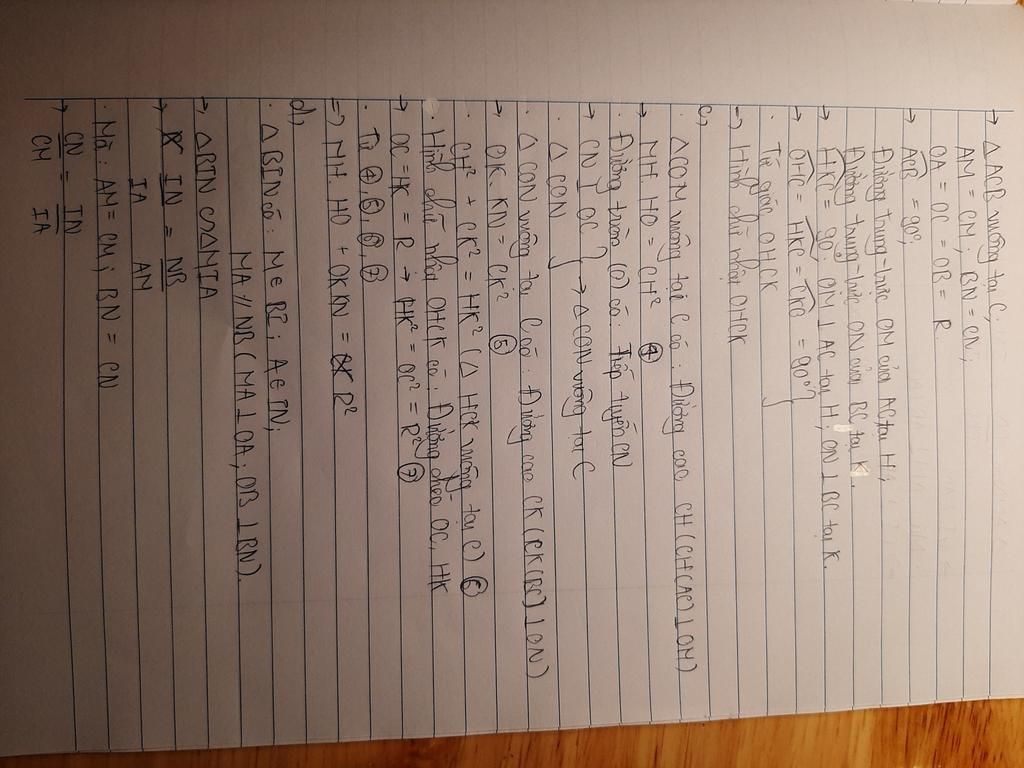 → △ACB vuông tại C,
AM = CM; BN = CN;
OA = OC = OB = R
→ ACB = 90°,
Đường trung trực OM của AC tại H,
Đường trung trực ON của BC tại K.
→ HKC = 90°, OM ⊥ AC tại H; ON ⊥ BC tại K.
→ OHC = HKC = OKC = 90°}
· Tứ giác OHCK
=) Hình chữ nhật OHCK
c,
· △COM vuông tại C có: Đường cao CH (CH(AC) ⊥ OM)
→ MH. HO = CH² ④
· Đường tròn (O) có: Tiếp tuyến CN
→ CN ⊥ OC } → △CON vuông tại C
· △CON
· △CON vuông tại C có: Đường cao CK (CK(BC) ⊥ ON)
→ OK. KN = CK² ⑤
· CH² + CK² = HK² (△ HCK vuông tại C) ⑥
· Hình chữ nhật OHCK có: Đường chéo OC, HK
→ OC = HK = R → HK² = OC² = R² ⑦
· Từ ④, ⑤, ⑥, ⑦
=) MH. HO + OK.KN = R²
d,
· △BIN có: M ∈ BI; A ∈ IN;
MA // NB (MA ⊥ OA; OB ⊥ BN).
→ △BIN ∽ △MIA
→ IN/IA = NB/AM
· Mà: AM = CM; BN = CN
→ CN/CM = IN/IA